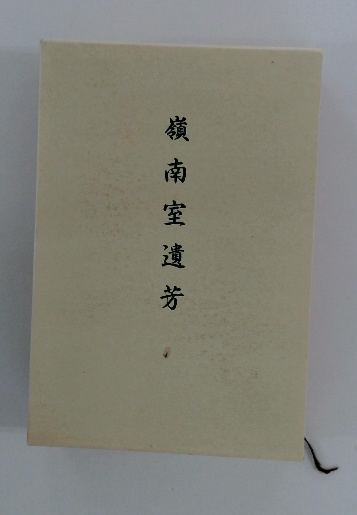 嶺南室遺芳